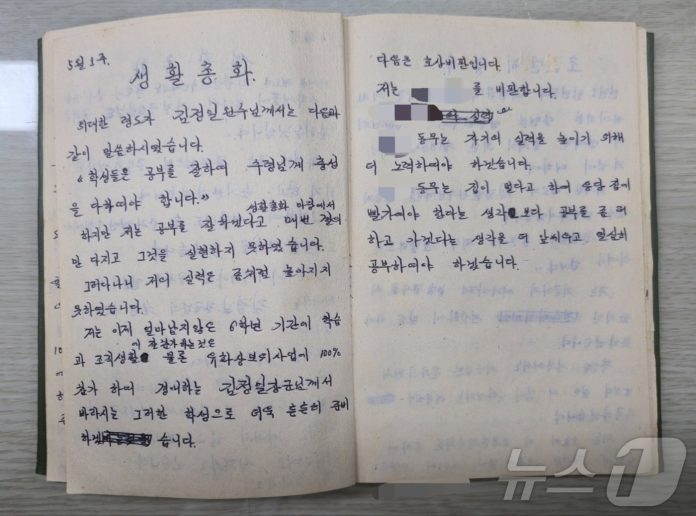 5월 1주.
생활총화.
위대한 령도자 김정일원수님께서는 다음과
같이 말씀하시였습니다.
《학생들은 공부를 잘하여 수령님께 충성
을 다하여야 합니다.》
생활총화 마당에서
하지만 저는 공부를 잘하겠다고 매번 결의
만 다지고 그것을 실현하지 못하였습니다.
그러다나니 저의 실력은 높아지지
못하였습니다.
저는 이제 얼마남지않은 6학년 기간에 학습
과 조직생활 물론 사업에 100%
참가 하여 경애하는 김정일장군님께서
바라시는 그러한 학생으로 더욱 튼튼히 준비
하겠습니다.
다음은 호상비판입니다.
저는 를 비판합니다.
동무는 자기의 실력을 높이기 위해
더 노력하여야 하겠습니다.
동무는 집이 멀다고 하여 집에
빨리 한다는 생각보다 공부를 좀 더
하고 가겠다는 생각을 더 앞세우고 열심히
공부하여야 하겠습니다.
뉴스1